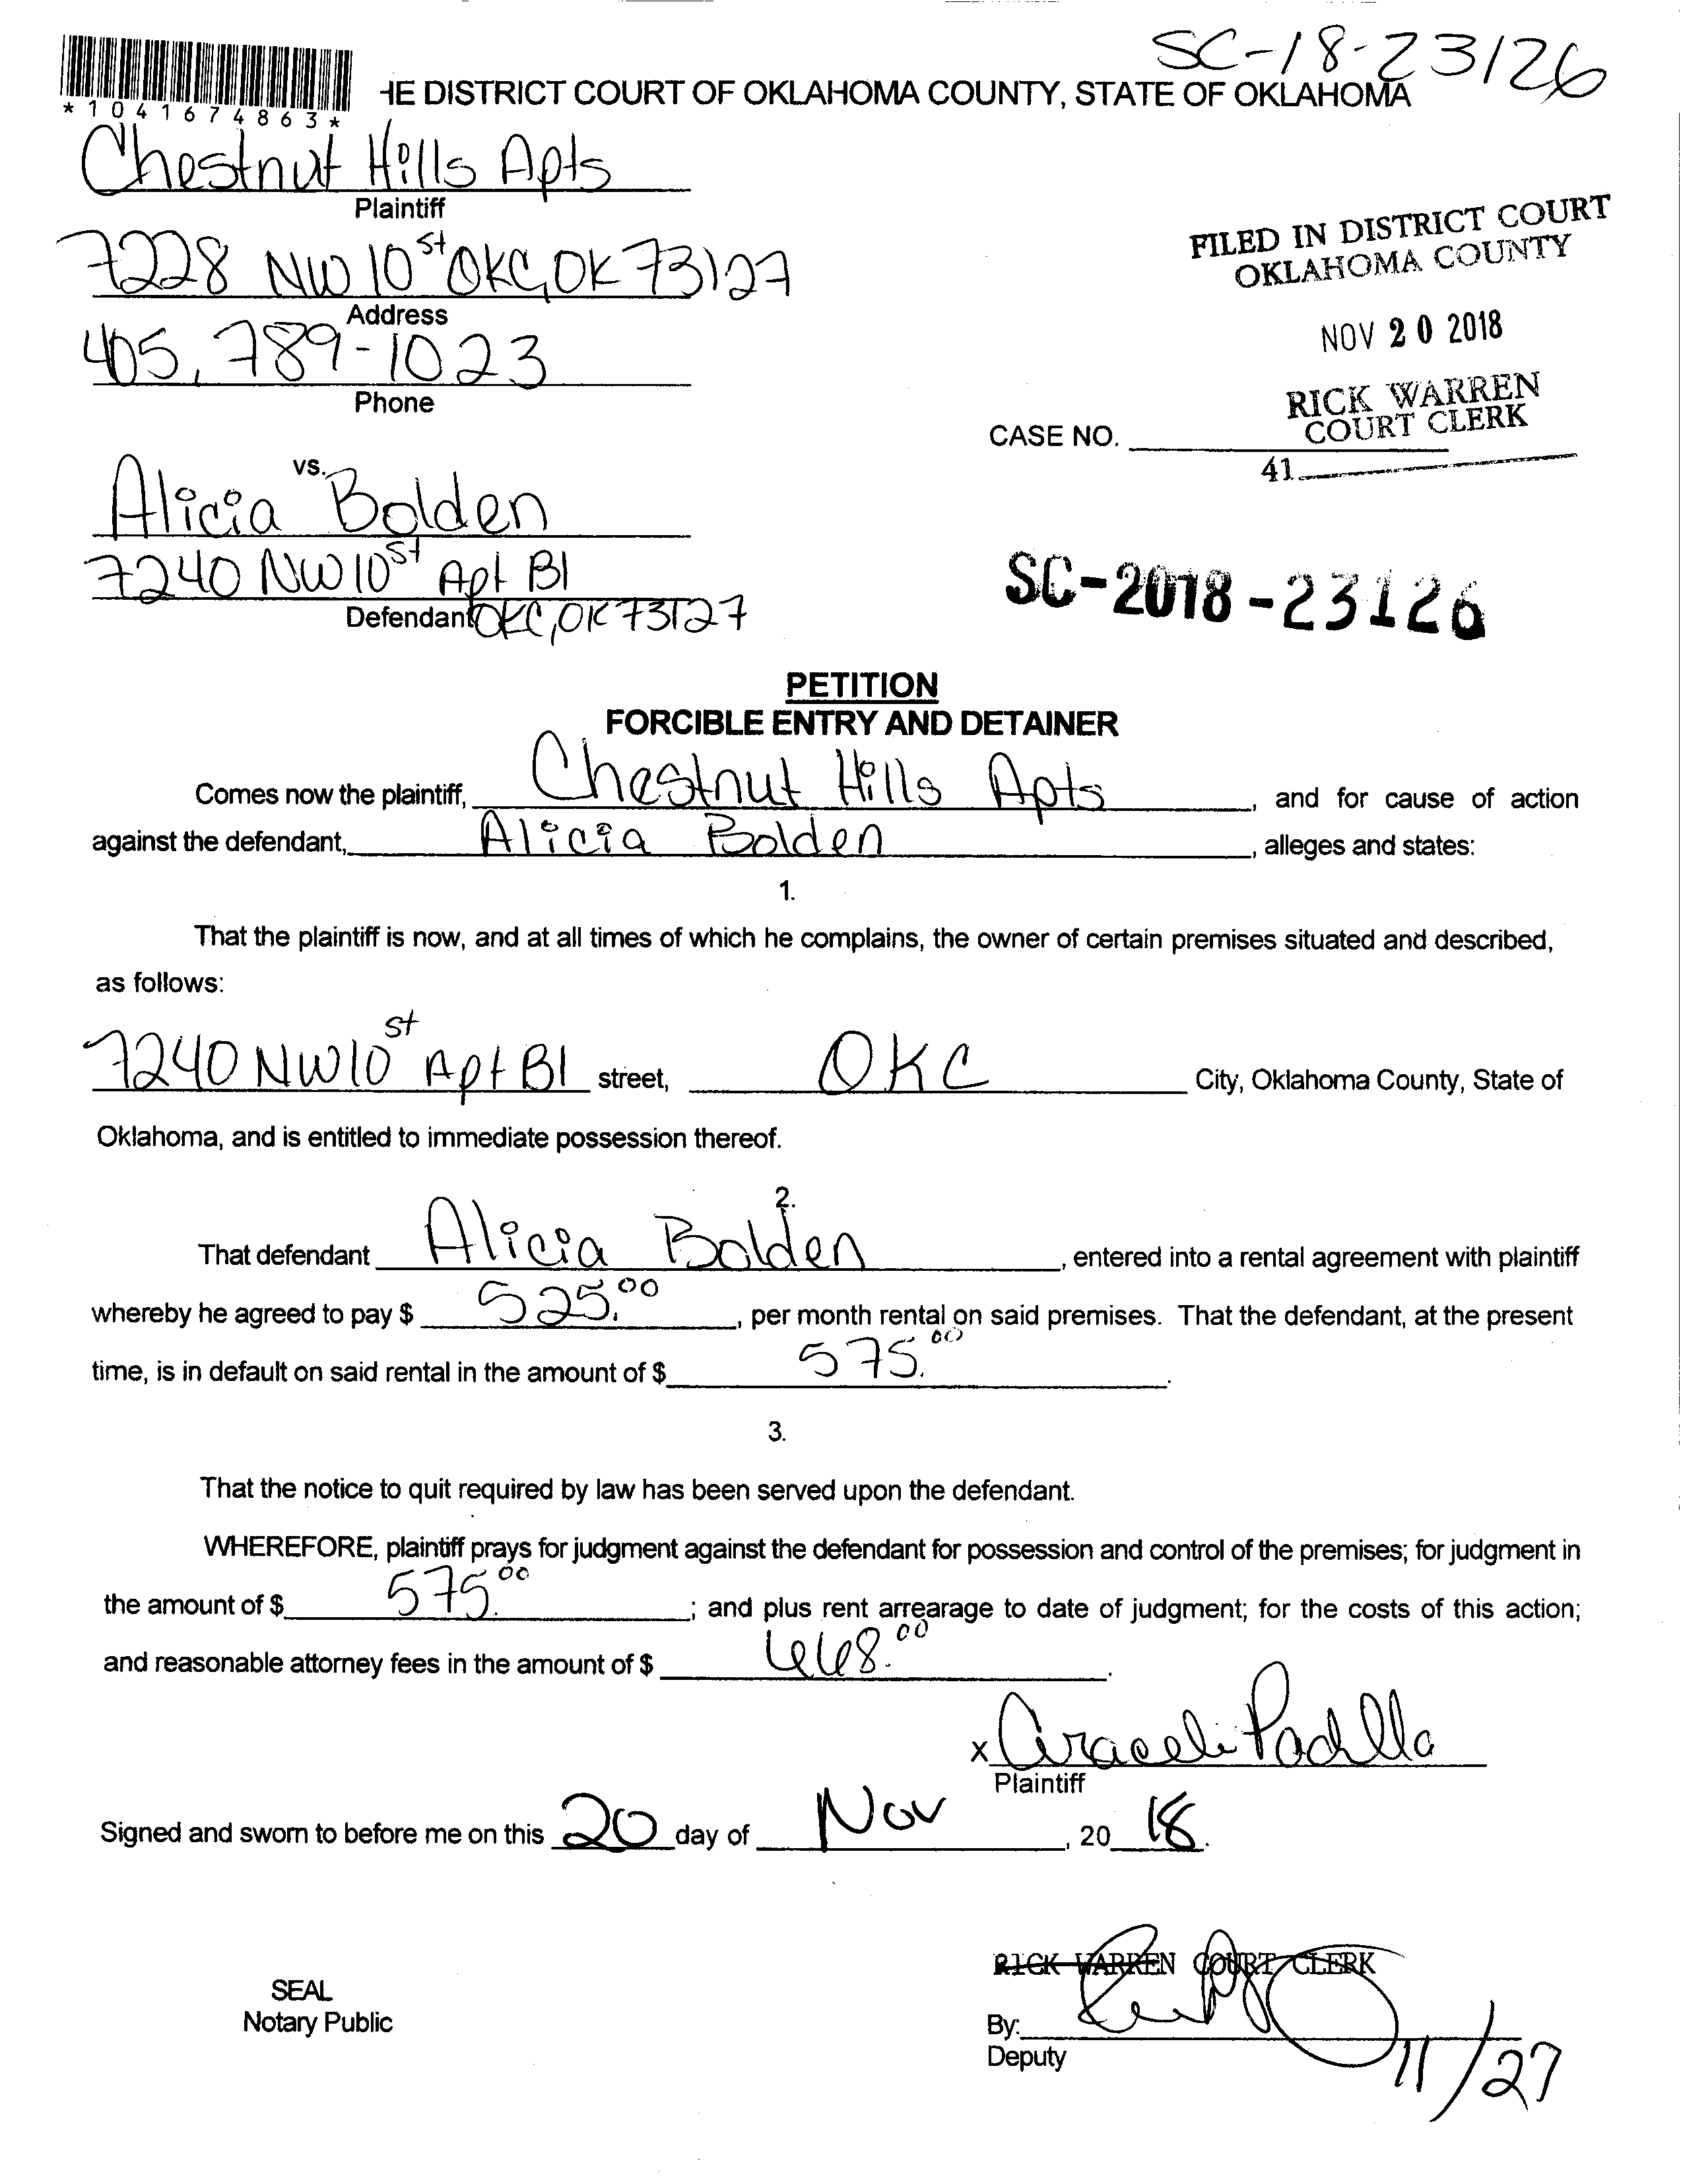 SC-18-23126
*1041674863*
HE DISTRICT COURT OF OKLAHOMA COUNTY, STATE OF OKLAHOMA
Chestnut Hills Apts
Plaintiff
7228 NW 10 st OKC, OK 73127
Address
405, 789-1023
Phone
FILED IN DISTRICT COURT
OKLAHOMA COUNTY
NOV 20 2018
RICK WARREN
COURT CLERK
CASE NO.
41
vs.
Alicia Bolden
7240 NW 10 st Apt B1
Defendant OKC, OK 73127
SC-2018-23126
PETITION
FORCIBLE ENTRY AND DETAINER
Comes now the plaintiff, Chestnut Hills Apts, and for cause of action
against the defendant, Alicia Bolden, alleges and states:
1.
That the plaintiff is now, and at all times of which he complains, the owner of certain premises situated and described,
as follows:
7240 NW 10 st Apt B1 street, OKC City, Oklahoma County, State of
Oklahoma, and is entitled to immediate possession thereof.
2.
That defendant Alicia Bolden, entered into a rental agreement with plaintiff
whereby he agreed to pay $ 525.00, per month rental on said premises. That the defendant, at the present
time, is in default on said rental in the amount of $ 575.00.
3.
That the notice to quit required by law has been served upon the defendant.
WHEREFORE, plaintiff prays for judgment against the defendant for possession and control of the premises; for judgment in
the amount of $ 575.00; and plus rent arrearage to date of judgment; for the costs of this action;
and reasonable attorney fees in the amount of $ 668.00.
x Araceli Padilla
Plaintiff
Signed and sworn to before me on this 20 day of Nov, 20 18.
SEAL
Notary Public
RICK WARREN COURT CLERK
By:
Deputy
11/27